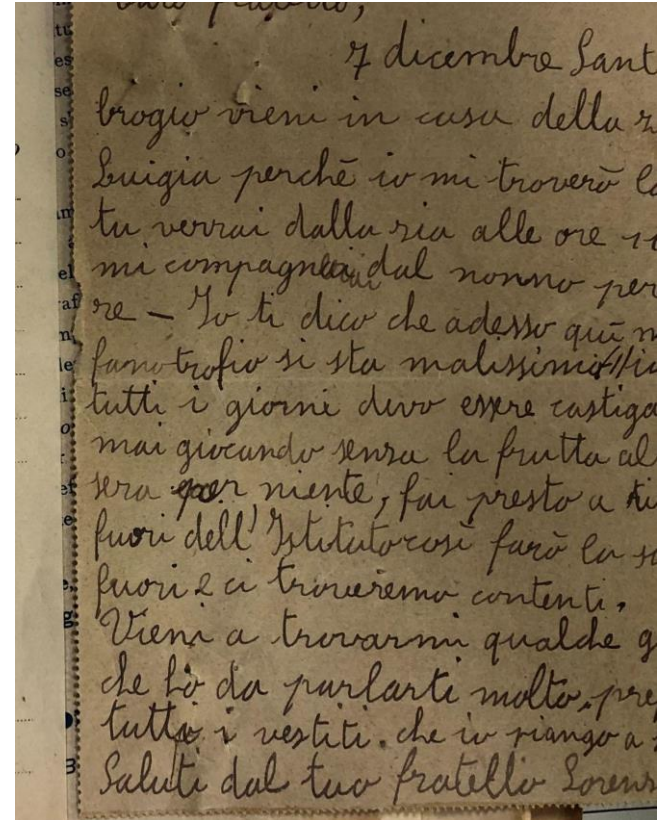 Caro fratello,
7 dicembre Sant
brogio vieni in casa della z
Luigia perchè io mi troverò la
tu verrai dalla zia alle ore 11
mi compagnerai dal nonno per
re – Io ti dico che adesso quì n
fanotrofio si sta malissimo
tutti i giorni devo essere castiga
mai giocando senza la frutta al
sera per niente, fai presto a ti
fuori dell'Istituto così farò la s
fuori e ci troveremo contenti.
Vieni a trovarmi qualche g
che hò da parlarti molto, pre
tutti i vestiti. che io piango a
Saluti dal tuo fratello Lorenz